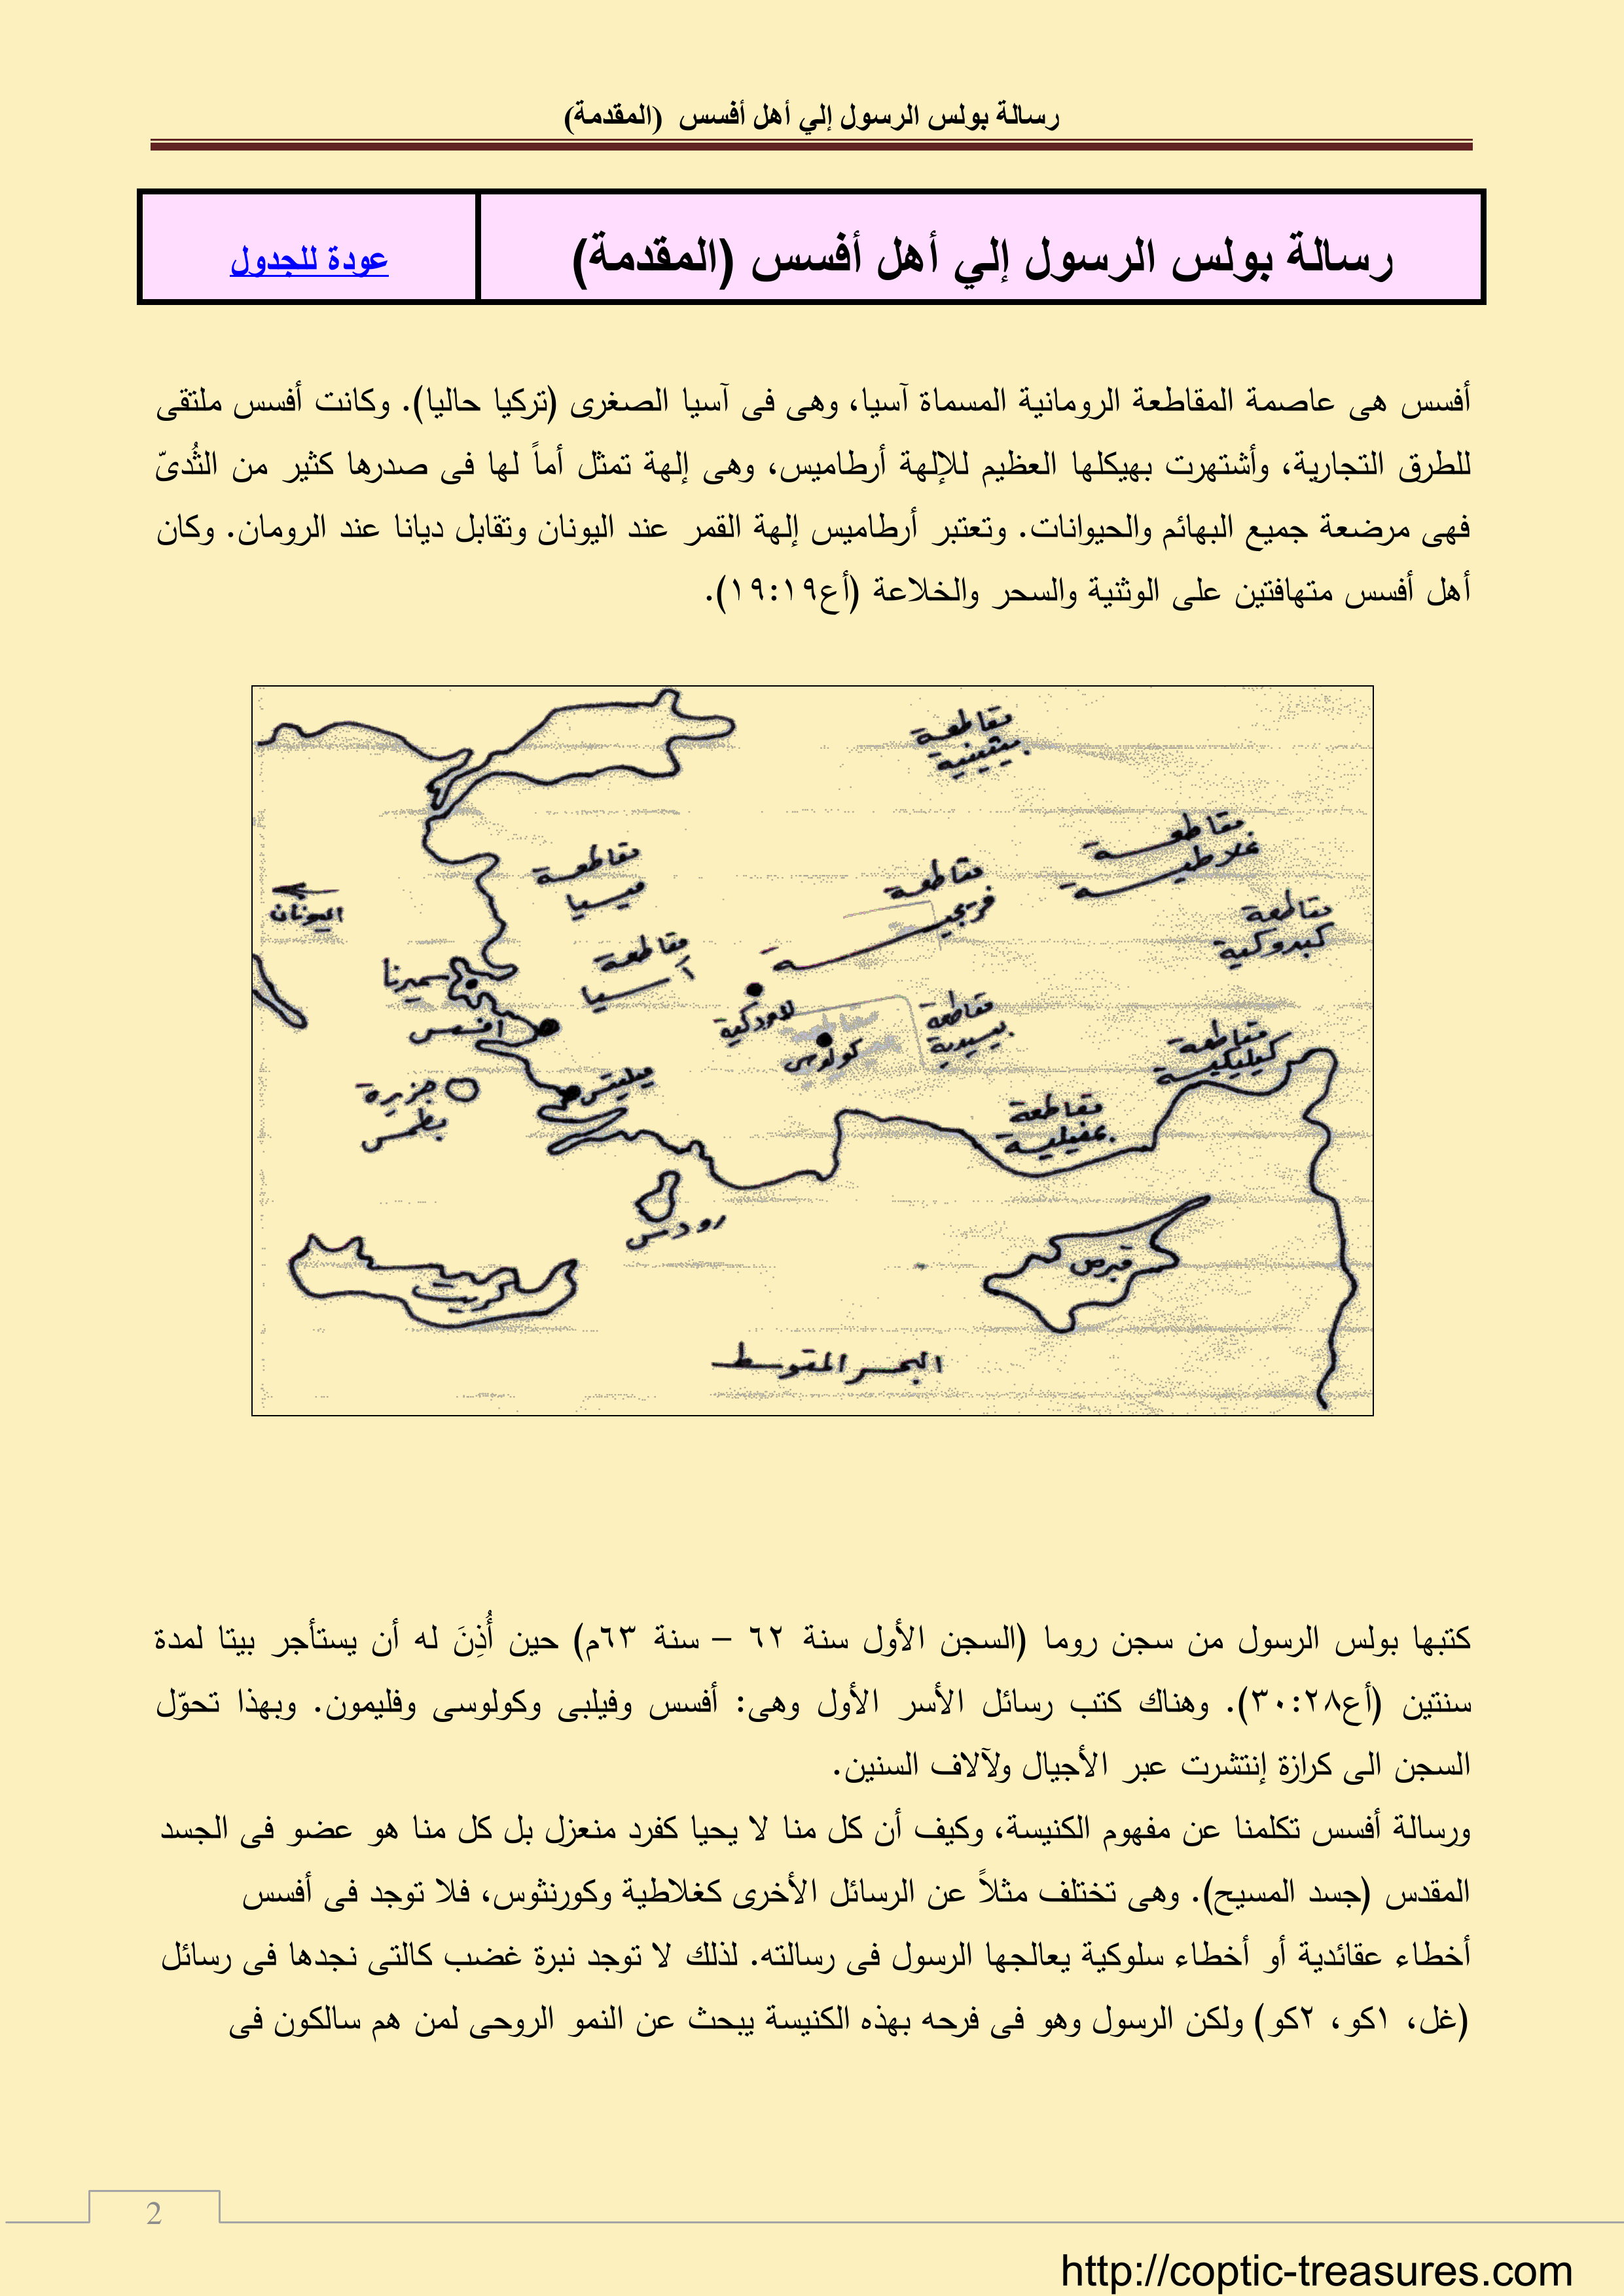 رسالة بولس الرسول إلي أهل أفسس (المقدمة)
رسالة بولس الرسول إلي أهل أفسس (المقدمة)
عودة للجدول
أفسس هى عاصمة المقاطعة الرومانية المسماة آسيا، وهى فى آسيا الصغرى (تركيا حاليا). وكانت أفسس ملتقى
للطرق التجارية، وأشتهرت بهيكلها العظيم للإلهة أرطاميس، وهى إلهة تمثل أماً لها فى صدرها كثير من الثُدىّ
فهى مرضعة جميع البهائم والحيوانات. وتعتبر أرطاميس إلهة القمر عند اليونان وتقابل ديانا عند الرومان. وكان
أهل أفسس متهافتين على الوثنية والسحر والخلاعة (أع١٩:١٩).
مقاطعة
بيثينية
مقاطعة
غلاطية
مقاطعة
ميسيا
مقاطعة
فريجية
اليونان
مقاطعة
كبدوكية
مقاطعة
آسيا
سميرنا
افسس
لاودكية
كولوسى
مقاطعة
بيسيدية
مقاطعة
كيليكية
ميليتس
جزيرة
بطمس
مقاطعة
بمفيلية
رودس
كريت
قبرص
البحر المتوسط
كتبها بولس الرسول من سجن روما (السجن الأول سنة ٦٢ – سنة ٦٣م) حين أُذِنَ له أن يستأجر بيتا لمدة
سنتين (أع٣٠:٢٨). وهناك كتب رسائل الأسر الأول وهى: أفسس وفيلبى وكولوسى وفليمون. وبهذا تحوّل
السجن الى كرازة إنتشرت عبر الأجيال ولآلاف السنين.
ورسالة أفسس تكلمنا عن مفهوم الكنيسة، وكيف أن كل منا لا يحيا كفرد منعزل بل كل منا هو عضو فى الجسد
المقدس (جسد المسيح). وهى تختلف مثلاً عن الرسائل الأخرى كغلاطية وكورنثوس، فلا توجد فى أفسس
أخطاء عقائدية أو أخطاء سلوكية يعالجها الرسول فى رسالته. لذلك لا توجد نبرة غضب كالتى نجدها فى رسائل
(غل، ١كو، ٢كو) ولكن الرسول وهو فى فرحه بهذه الكنيسة يبحث عن النمو الروحى لمن هم سالكون فى
2
http://coptic-treasures.com